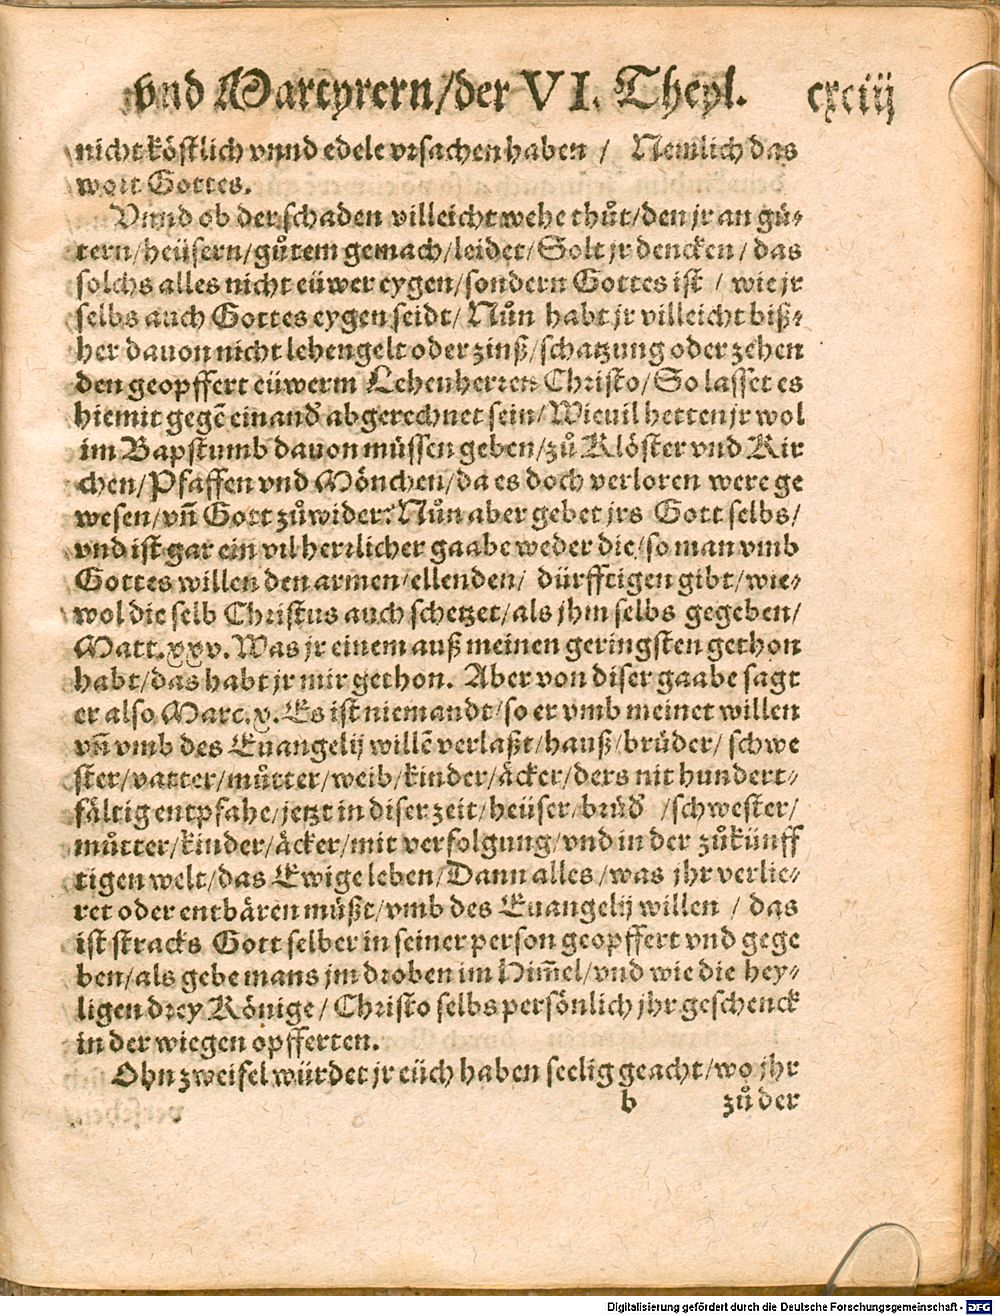 vnd Martyrern/der VI. Theyl. cxciij
nicht köstlich vnnd edele vrsachen haben / Nemlich das
wort Gottes.
Vnnd ob der schaden villeicht wehe thůt/den jr an gü-
tern/heüsern/gůtem gemach/leidet/Solt jr dencken/ das
solchs alles nicht eüwer eygen/sondern Gottes ist / wie jr
selbs auch Gottes eygen seidt/ Nůn habt jr villeicht biß-
her dauon nicht lehengelt oder zinß/schatzung oder zehen
den geopffert eüwerm Lehenherren Christo/So lasset es
hiemit gegē einand' abgerechnet sein/Wieuil hetten jr wol
im Bapstumb dauon müssen geben/zů Klöster vnd Kir
chen/Pfaffen vnd Mönchen/da es doch verloren were ge
wesen/vn̄ Gott zůwider? Nůn aber gebet jrs Gott selbs/
vnd ist gar ein vil herrlicher gaabe weder die/so man vmb
Gottes willen den armen/ellenden/ dürfftigen gibt/wie-
wol die selb Christus auch schetzet/als jhm selbs gegeben/
Matt.xxv. Was jr einem auß meinen geringsten gethon
habt/das habt jr mir gethon. Aber von diser gaabe sagt
er also Marc.x. Es ist niemandt/so er vmb meinet willen
vn̄ vmb des Euangelij willē verlaßt/hauß/brüder/ schwe
ster/vatter/můtter/weib/kinder/äcker/ders nit hundert-
fältig entpfahe/jetzt in diser zeit/heüser/brüd' /schwester/
můtter/kinder/äcker/mit verfolgung/vnd in der zůkünff
tigen welt/das Ewige leben/Dann alles/was jhr verlie-
ret oder entbären müßt/vmb des Euangelij willen / das
ist stracks Gott selber in seiner person geopffert vnd gege
ben/als gebe mans jm droben im Him̄el/vnd wie die hey-
ligen drey Könige/ Christo selbs persönlich jhr geschenck
in der wiegen opfferten.
Ohn zweifel würdet jr eüch haben seelig geacht/wo jhr
b zů der
Digitalisierung gefördert durch die Deutsche Forschungsgemeinschaft - DFG